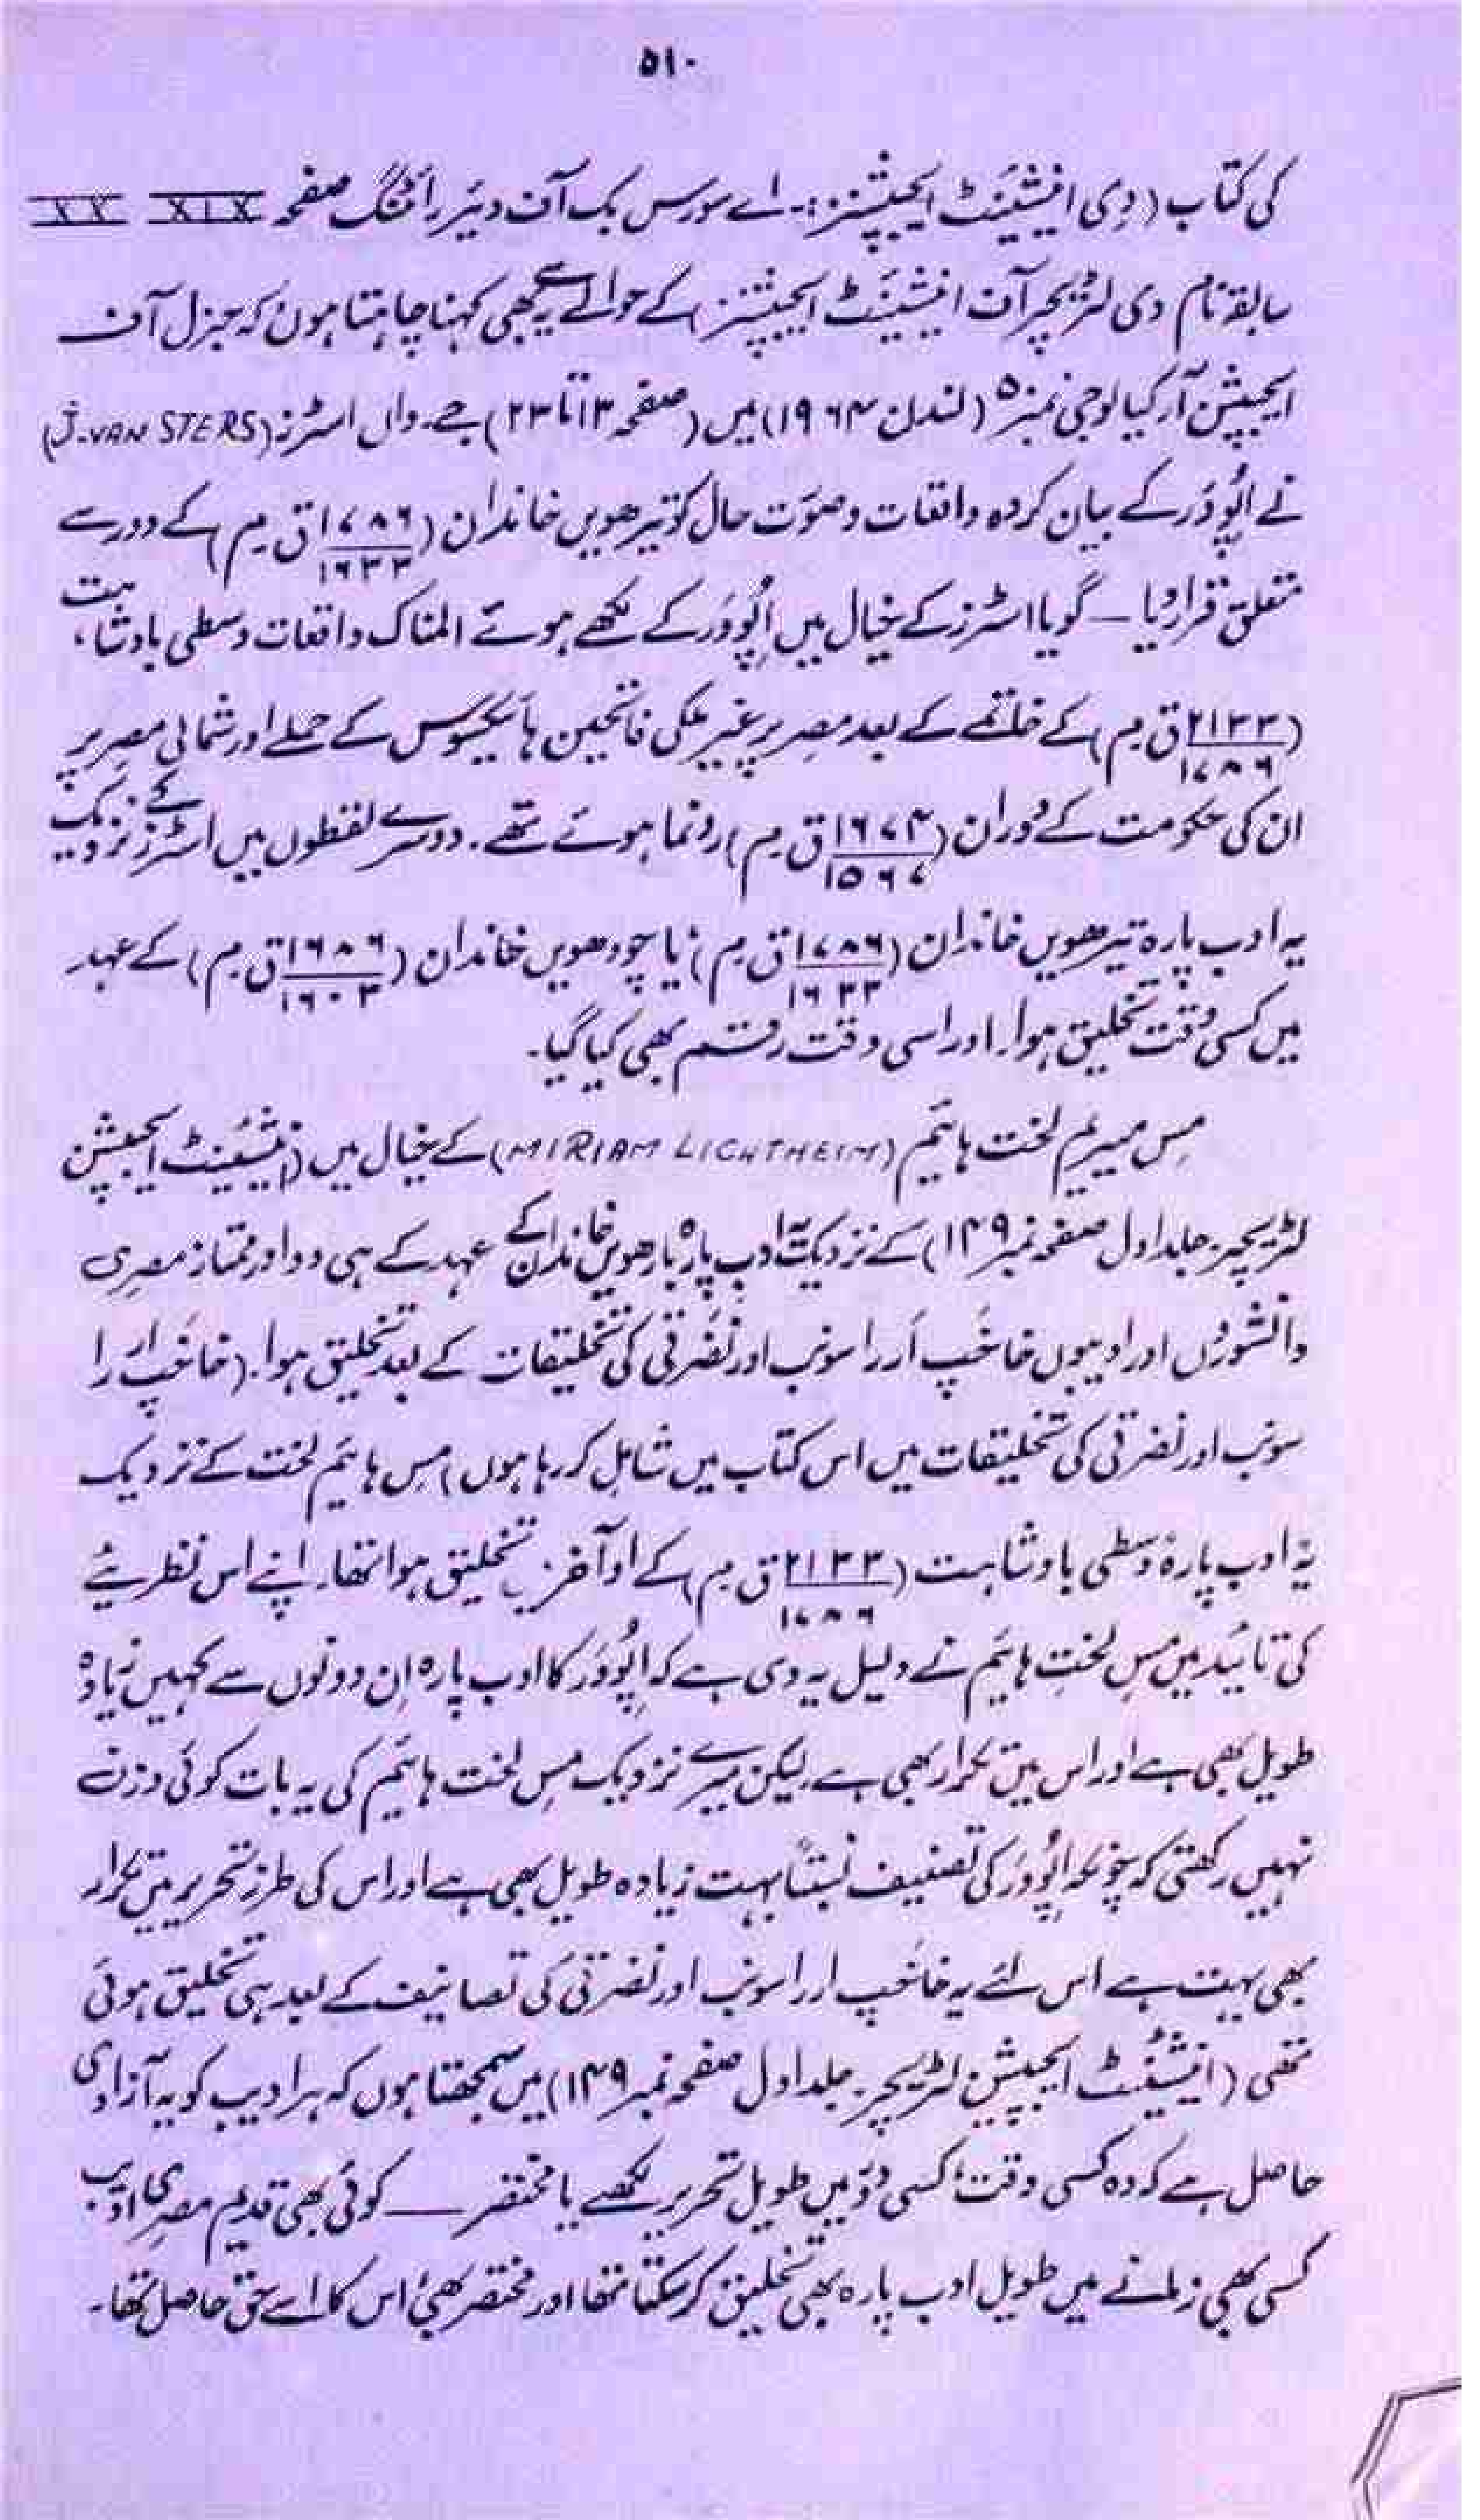 ۵۱۰
کی کتاب (دی اینشیئنٹ ایجپشینز:۔ اے سورس بک آف دیئر رائٹنگ صفحہ XIX XX
سابقہ نام دی لٹریچر آف اینشیئنٹ ایجپشینز) کے حوالے سے یہ بھی کہنا چاہتا ہوں کہ جرنل آف
ایجپشن آرکیالوجی نمبر ۵ (لندن ۱۹۶۴) میں (صفحہ ۱۳ تا ۲۳) جے۔ وان اسٹرز (J.VAN STERS)
نے اِپُووَر کے بیان کردہ واقعات و صورت حال کو تیرھویں خاندان (۱۷۸۶/۱۶۳۳ ق م) کے دور سے
متعلق قرار دیا — گویا اسٹرز کے خیال میں اِپُووَر کے لکھے ہوئے المناک واقعات وسطی بادشاہت
(۲۱۳۳/۱۷۸۶ ق م) کے خاتمے کے بعد مصر پر غیر ملکی فاتحین ہائیکسوس کے حملے اور شمالی مصر پر
ان کی حکومت کے دوران (۱۶۷۴/۱۵۶۷ ق م) رونما ہوئے تھے۔ دوسرے لفظوں میں اسٹرز کے نزدیک
یہ ادب پارہ تیرھویں خاندان (۱۷۸۶/۱۶۳۳ ق م) یا چودھویں خاندان (۱۶۸۶/۱۶۰۳ ق م) کے عہد
میں کسی وقت تخلیق ہوا۔ اور اسی وقت رقم بھی کیا گیا۔
مِس میریم لخت ہائیم (MIRIAM LICHTHEIM) کے خیال میں (اینشیئنٹ ایجپشن
لٹریچر۔ جلد اول صفحہ نمبر ۱۴۹) کے نزدیک یہ ادب پارہ بارھویں خاندان کے عہد کے ہی دو اور ممتاز مصری
دانشوروں اور ادیبوں خاخَپ اَررا سونب اور نَفَرتی کی تخلیقات کے بعد تخلیق ہوا۔ (خاخَپ ارر را
سونب اور نفرتی کی تخلیقات میں اس کتاب میں شامل کر رہا ہوں) مِس ہائیم لخت کے نزدیک
یہ ادب پارہ وسطی بادشاہت (۲۱۳۳/۱۷۸۶ ق م) کے اوآخر تخلیق ہوا تھا۔ اپنے اس نظریئے
کی تائید میں مِس لخت ہائیم نے دلیل یہ دی ہے کہ اِپُووَر کا ادب پارہ اِن دونوں سے کہیں زیادہ
طویل بھی ہے اور اس میں تکرار بھی ہے۔ لیکن میرے نزدیک مِس لخت ہائیم کی یہ بات کوئی وزن
نہیں رکھتی کہ چونکہ اِپُووَر کی تصنیف نسبتاً بہت زیادہ طویل بھی ہے اور اس کی طرز تحریر میں تکرار
بھی بہت ہے اس لئے یہ خاخَپ اررا سونب اور نفرتی کی تصانیف کے بعد ہی تخلیق ہوئی
تھی (اینشیئنٹ ایجپشن لٹریچر۔ جلد اول صفحہ نمبر ۱۴۹) میں سمجھتا ہوں کہ ہر ادیب کو یہ آزادی
حاصل ہے کہ وہ کسی وقت، کسی دور میں طویل تحریر لکھے یا مختصر — کوئی بھی قدیم مصری ادیب
کسی بھی زمانے میں طویل ادب پارہ بھی تخلیق کر سکتا تھا اور مختصر بھی، اس کا اسے حق حاصل تھا۔